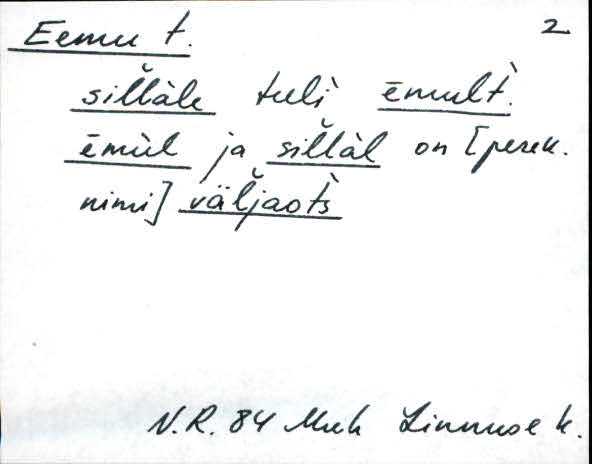 Eemu t. 2
sil̆làle tuli ēmult̀.
ēmùl ja sil̆làl on [perek.
nimi] väl̆jaot̀s
N.R. 84 Muh Linnuse k.